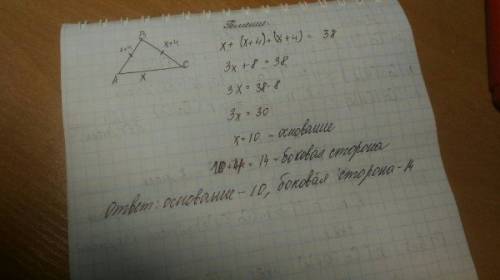 Решение.
B
x+4
x+4
A
x
C
x + (x+4) + (x+4) = 38
3x + 8 = 38
3x = 38-8
3x = 30
x = 10 - основание
10+4 = 14 - боковая сторона
Ответ: основание - 10, боковая сторона - 14